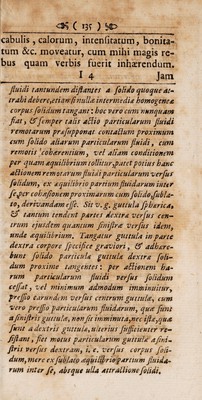 ( 135 )
cabulis, calorum, intensitatum, bonita-
tum &c. moveatur, cum mihi magis re-
bus quam verbis fuerit inhærendum.
I 4 Jam
fluidi tantundem distantes a solido quoque at-
trahi debere, etiamsi nulla intermedia homogenea
corpus solidum tangant: hoc vero cum nunquam
fiat, & semper talis actio particularum fluidi
remotarum præsupponat contactum proximum
cum solido aliarum particularum fluidi, cum
remotis cohærentium, vel aliam conditionem
per quam æquilibrium tollitur, patet potius hanc
actionem remotarum fluidi particularum versus
solidum, ex æquilibrio partium fluidarum inter
se, per cohæsionem proximarum cum solido, subla-
to, derivandam esse. Sit v. g. guttula sphærica,
& tantum tendent partes dextræ versus cen-
trum ejusdem quantum sinistræ versus idem,
unde æquilibrium, Tangatur guttula in parte
dextra corpore specifice graviori, & adhære-
bunt solido particulæ guttulæ dextræ soli-
dum proxime tangentes: per actionem ha-
rum particularum fluidi versus solidum
cessat, vel minimum admodum imminuitur,
pressio earundem versus centrum guttulæ, cum
vero pressio particularum fluidarum, quæ sunt
a sinistris guttulæ, non sit imminuta, nec iste, quæ
sunt a dextris guttulæ, ulterius sufficienter re-
sistant, fiet motus particularum guttulæ a sini-
stris versus dextram, i. e. versus corpus soli-
dum, mere ex sublato æquilibrio particularum
inter se, absque ulla attractione solidi.